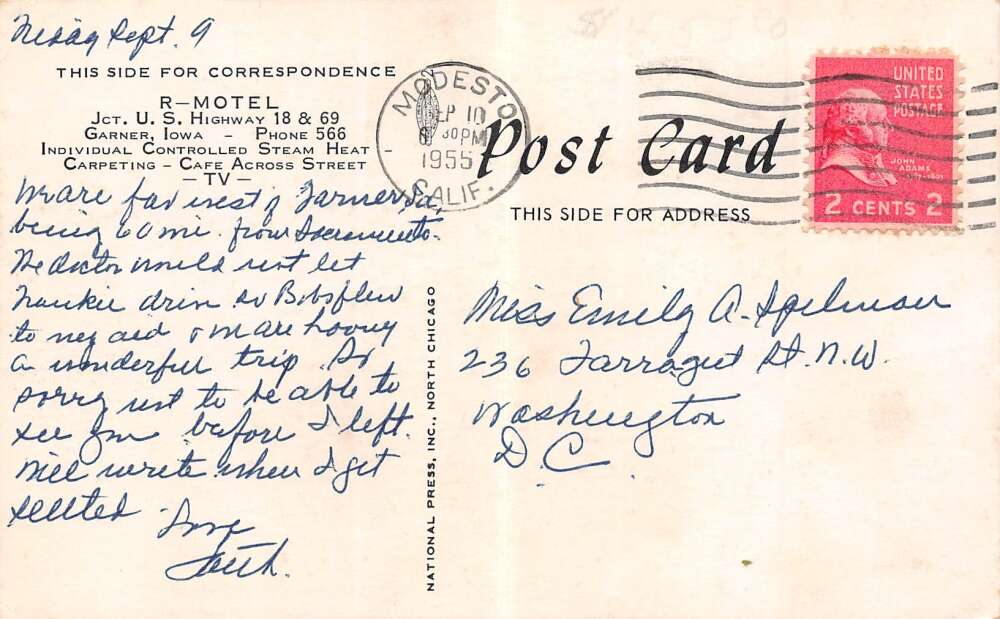 Friday Sept. 9
THIS SIDE FOR CORRESPONDENCE
R-MOTEL
JCT. U. S. HIGHWAY 18 & 69
GARNER, IOWA - PHONE 566
INDIVIDUAL CONTROLLED STEAM HEAT
CARPETING - CAFE ACROSS STREET
-TV-
We are far west of Garner, Ia,
being 60 mi. from Sacramento.
The doctor would not let
Frankie drive so Bobs flew
to my aid & we are having
a wonderful trip. So
sorry not to be able to
see you before I left.
Will write when I get
settled. Love
Faith.
NATIONAL PRESS, INC., NORTH CHICAGO
MODESTO
SEP 10
30 PM
1955
CALIF.
Post Card
THIS SIDE FOR ADDRESS
UNITED
STATES
POSTAGE
JOHN
ADAMS
2 CENTS 2
Miss Emily A. Spelman
236 Farragut St. N.W.
Washington
D.C.